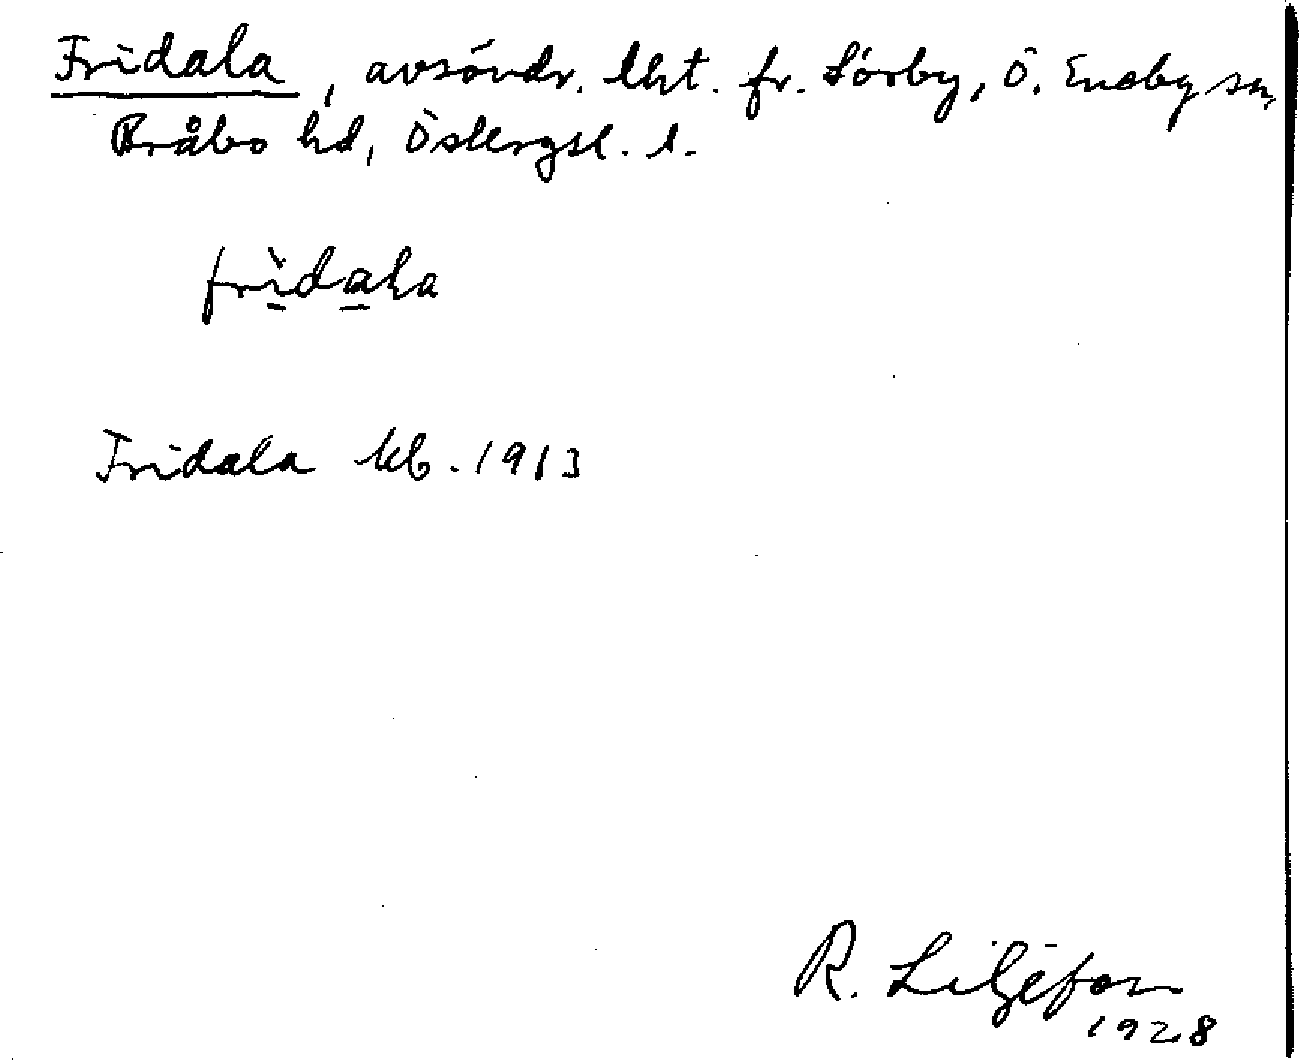 Fridala, avsöndr. lht. fr. Sörby, Ö. Eneby sn,
Bråbo hd, Östergtl. l.
fridala
Fridala kb. 1913
R. Liljefors
1928